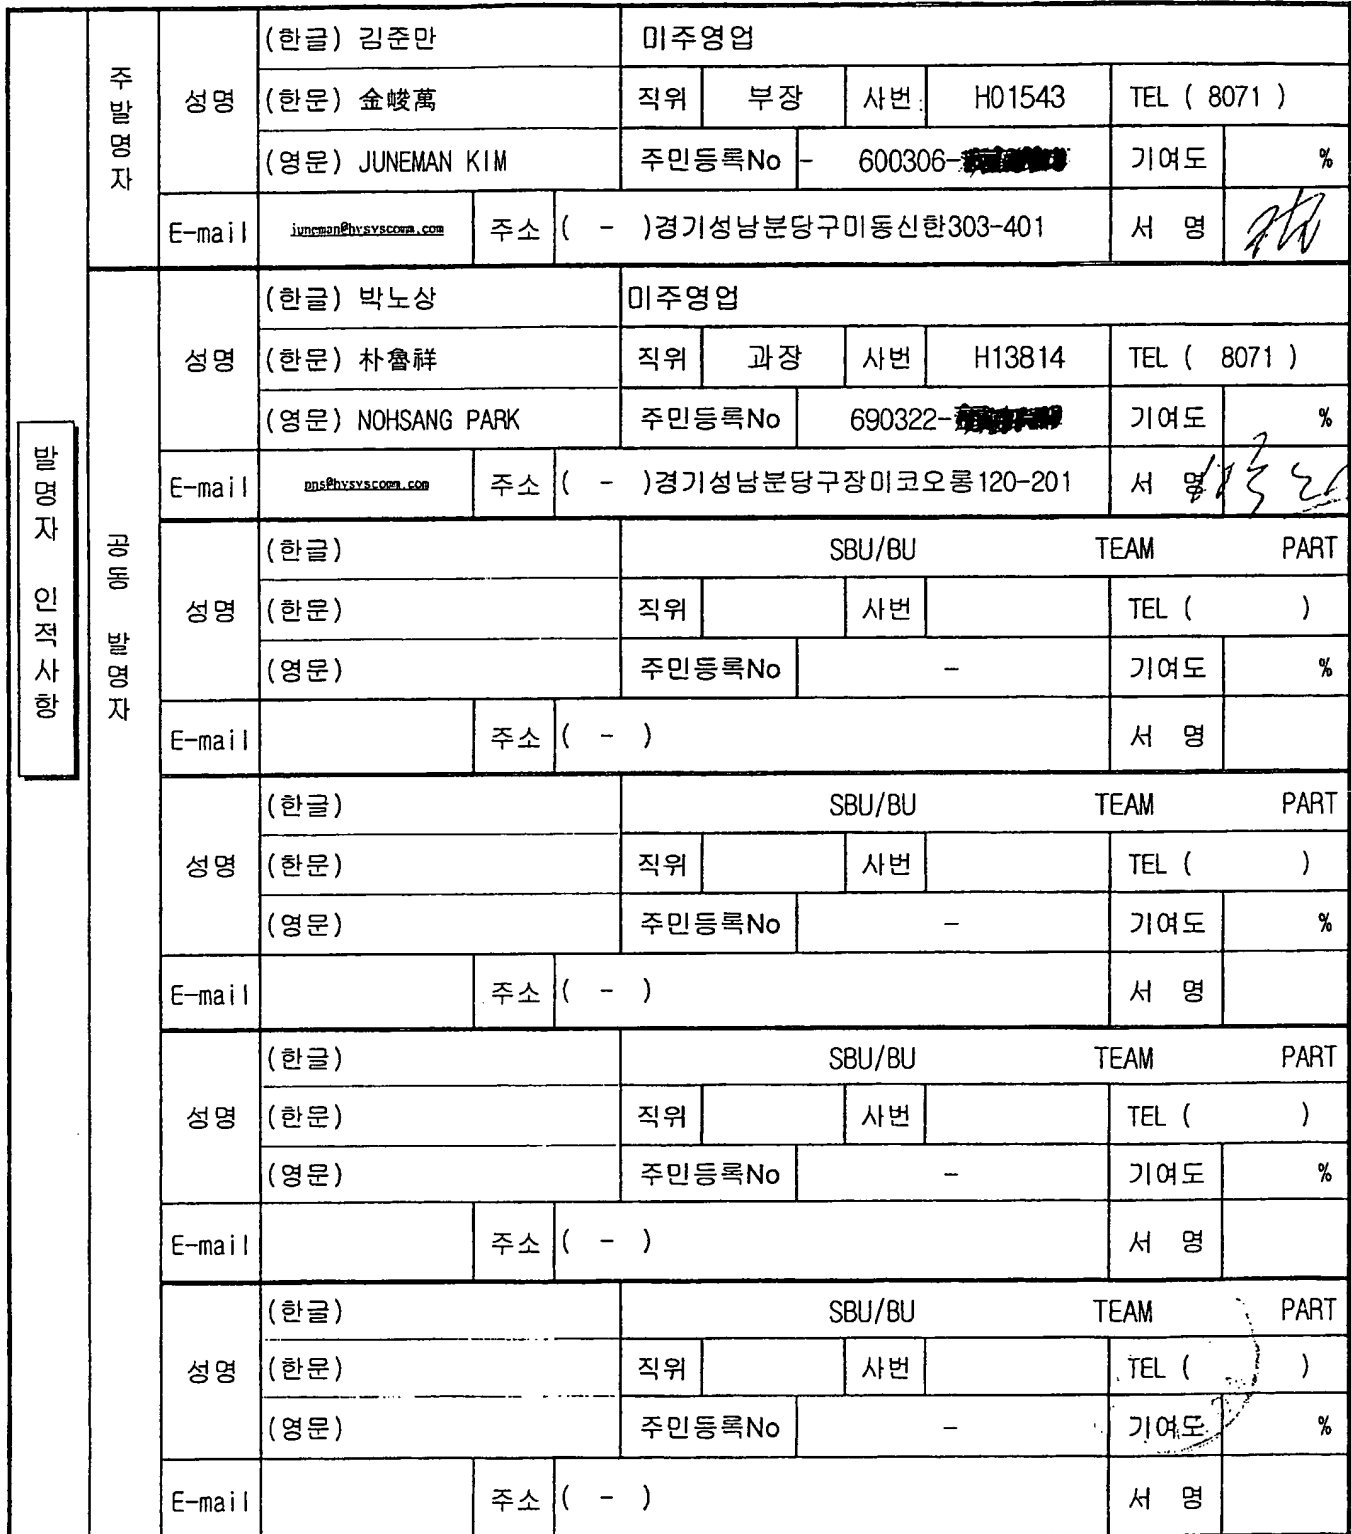 발명자 인적사항
주발명자
성명
(한글) 김준만 미주영업
(한문) 金峻萬 직위 부장 사번 H01543 TEL ( 8071 )
(영문) JUNEMAN KIM 주민등록No - 600306- 기여도 %
E-mail juneman@hysyscomm.com 주소 ( - )경기성남분당구미동신한303-401 서 명
공동 발명자
성명
(한글) 박노상 미주영업
(한문) 朴魯祥 직위 과장 사번 H13814 TEL ( 8071 )
(영문) NOHSANG PARK 주민등록No 690322- 기여도 %
E-mail pns@hysyscomm.com 주소 ( - )경기성남분당구장미코오롱120-201 서 명
성명
(한글) SBU/BU TEAM PART
(한문) 직위 사번 TEL ( )
(영문) 주민등록No - 기여도 %
E-mail 주소 ( - ) 서 명
성명
(한글) SBU/BU TEAM PART
(한문) 직위 사번 TEL ( )
(영문) 주민등록No - 기여도 %
E-mail 주소 ( - ) 서 명
성명
(한글) SBU/BU TEAM PART
(한문) 직위 사번 TEL ( )
(영문) 주민등록No - 기여도 %
E-mail 주소 ( - ) 서 명
성명
(한글) SBU/BU TEAM PART
(한문) 직위 사번 TEL ( )
(영문) 주민등록No - 기여도 %
E-mail 주소 ( - ) 서 명